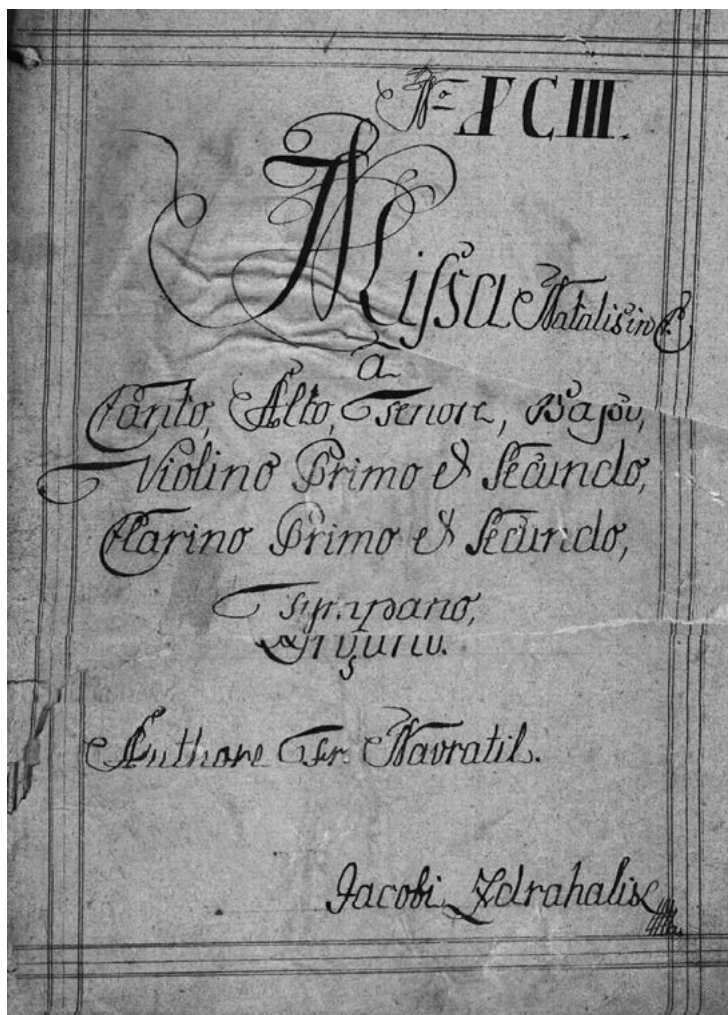 No. XCIII.
Missa Natalis in C
a
Canto, Alto, Tenore, Basso,
Violino Primo et Secundo,
Clarino Primo et Secundo,
Tympano,
Organo.
Authore Fr. Navratil.
Jacobi Zdrahalis